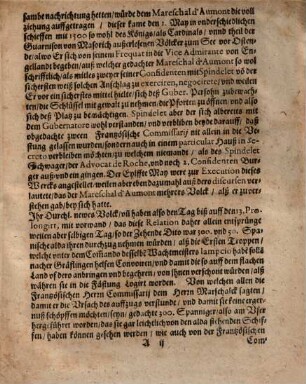 sambt nachrichtung hetten / würde dem Mareschal d'Aumont die voll
ziehung auffgetragen / dieser kame den 1. May in underschiedlichen
schieffen mit 1500 so wohl des Königs / als Cardinals / unnd theil der
Guarnison von Masorich außerlesenen Völcker zum See vor Osten-
de / alwo Er sich von jenem Frequat in der Vice Admirante von En-
gelland begeben / auß welcher gedachter Mareschal d'Aumont so wol
schrifftlich / als mitles zweyer seiner Confidenten mit Spindelet wo der
sichersten mösse solchen Anschlag zu exerciren, negociirte / und wie den
Er vor ein sichersten mittel hielte / sich deß Guber. Person zubewach-
ten / die Schlüssel mit gewalt zu nehmen, die Pforten zu öffnen, und also
sich deß Platz zu bemächtigen. Spindelet aber der sich alberits mit
dem Gubernatore wohl verstanden / und verblieben beyde darauff, daß
obgedachte zween Frantzösische Commissarij mit allein in die Ve-
stung gelassen wurden / sondern auch in einem particular Hauß in Se-
creto verbleiben möchten / zu welchem niemand / als des Spindelet
Schwager / der Advocat de Roche, und noch 2. Confidenten Bur-
ger auß und ein gingen. Der Eylffte May were zur Execution dieses
Wercks angestellet / weilen aber eben dazumahl auß dero discursen ver-
lautet / das der Mareschal d'Aumont mehrers Volck / alß er zuver-
stehen gab / bey sich hatte.
Ihr Durchl. newes Volck / will haben also den Tag biß auff den 13. Pro-
longirt, mit vorwandt, das dieß Relation daher allein entsprunge
weilen aber selbigen Tag / so der Zehende Dito war 300. und 50. Spanier
alda ihren durchzug nehmen würden / alß die Ersten Troppen /
welche unter dem Commando desselbe Wachtmeisters lampicio habe sollen
nacher Gräßlingen helffen Convoyren / und damit die so auff dem flachen
Land es dero anbringen und begehren / von ihnen verschonet würden / alß
währten sie in die Vestung Logirt worden. Von welchen allen die
Frantzösischen Herrn Commissarij dem Herrn Marschalck sagten /
damit er die Ursach des auffzugs verstunde / und damit sie keine ergre-
nuß schöpffen möchten / seyn gedachte 300. Spannier / also am Ufer
hergeführet worden / das sie gar leichtlich von den alda stehenden Schif-
fen / haben können gesehen werden / wie auch von der Frantzösischen
A ij
Com-